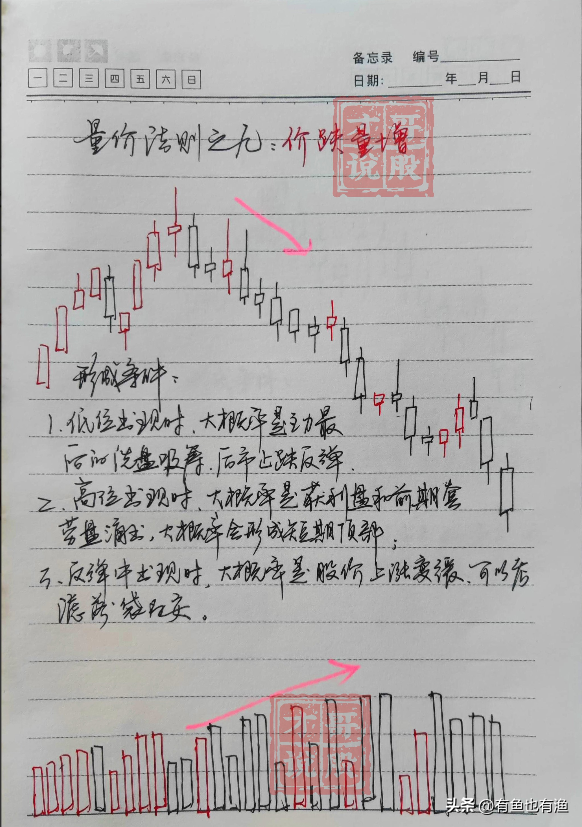 备忘录 编号
一 二 三 四 五 六 日
日期: 年 月 日
量价法则之九:价跌量增
哥
说股
形成条件:
1、低位出现时、大概率是主力最
后的洗盘吸筹,后市止跌反弹.
二、高位出现时,大概率是获利盘和前期套
牢盘涌出,大概率会形成短期顶部;
三、反弹中出现时,大概率是股价上涨变缓、可以考
虑落袋为安。
哥
说股
头条 @有鱼也有渔